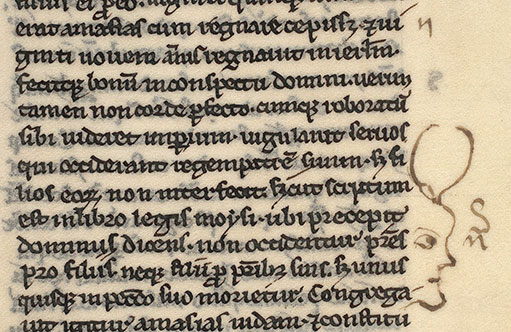 erat amasias cum regnare cepiss; ⁊ ui
ginti nouem annis regnauit in ierlm̄.
fecitq; bonū in conspectu domini. uerun
tamen non corde ꝑfecto. cumq; roboratū
sibi uideret imꝑium. iugulauit seruos
qui occiderant regem patrē suum. s; fi
lios eoꝝ non interfecit. sicut scriptum
est in libro legis moysi. ubi precepit
dominus dicens. non occidentur pr̄es
pro filiis. neq; filii ꝓ pr̄ib; suis. s; unus
quisq; in pccō suo morietur. Congrega
uit igitur amasias iudam. ⁊ constitu